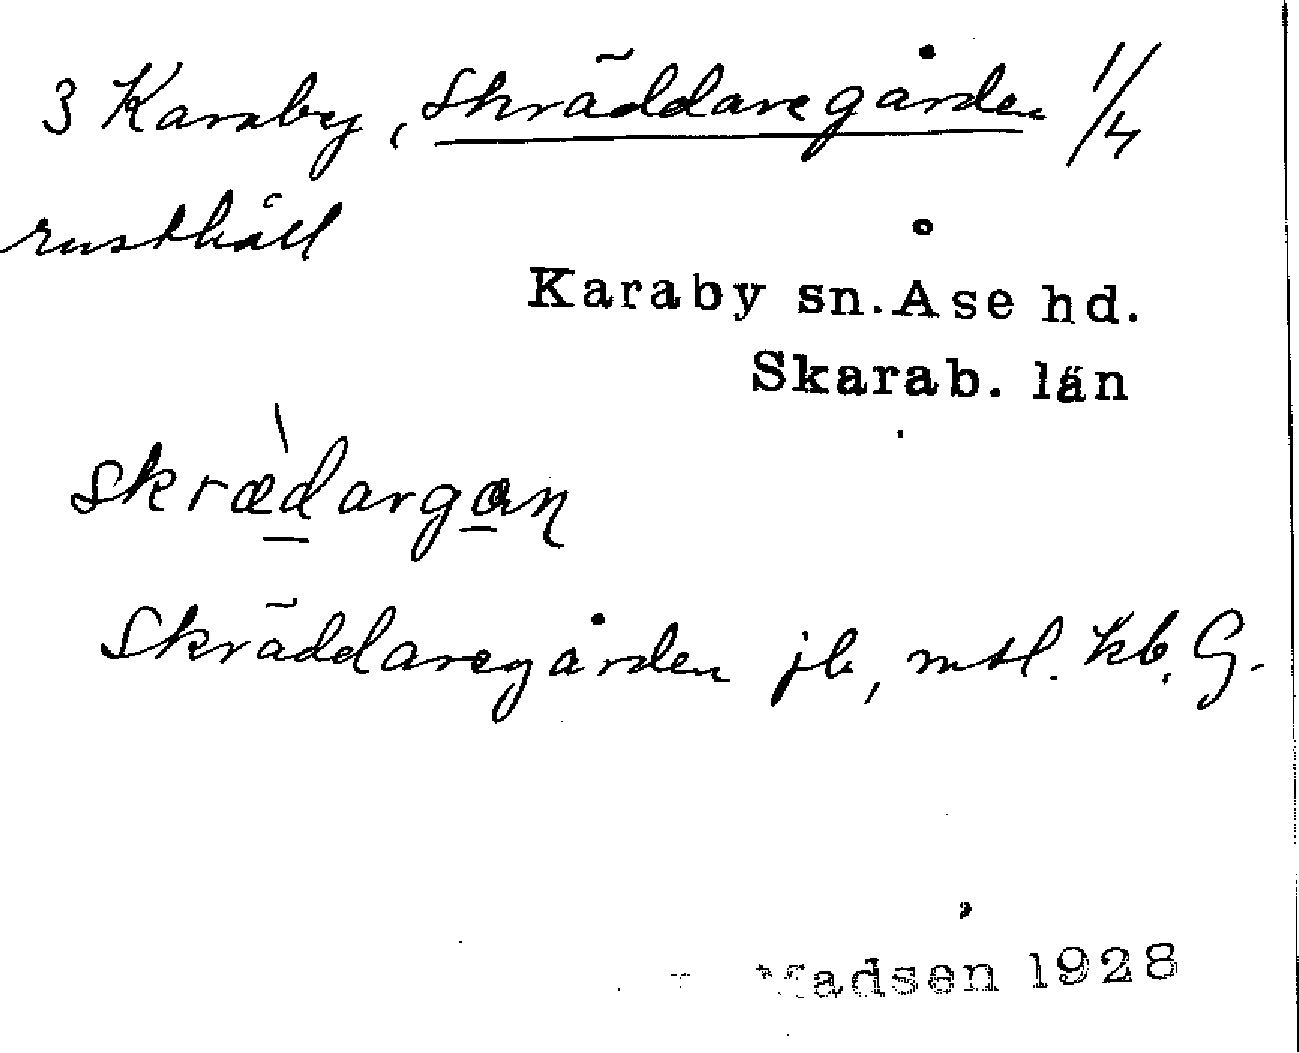 3 Karaby, Skräddaregården 1/4
rusthåll
Karaby sn. Åse hd.
Skarab. län
skræ̀dargan
Skräddaregården jb, mtl. kb. G.
Madsen 1928